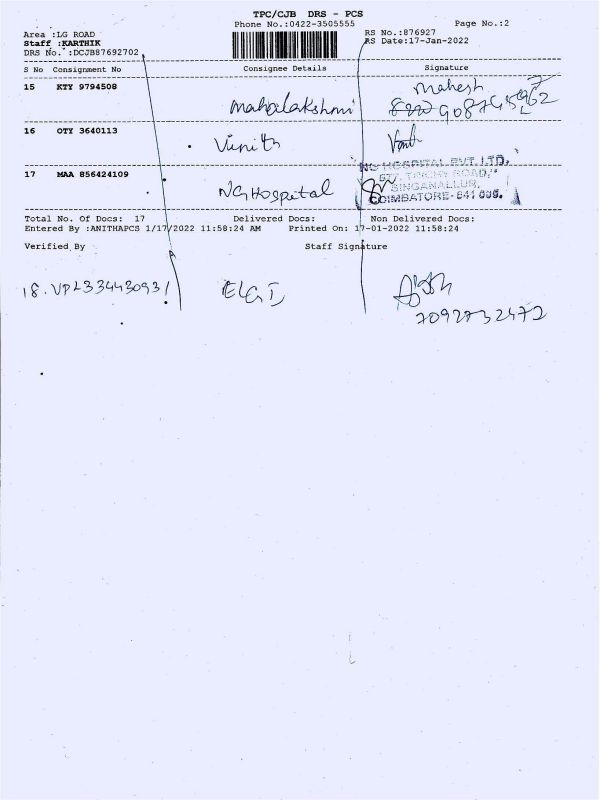 TPC/CJB DRS - PCS
Phone No.:0422-3505555 Page No.:2
Area :LG ROAD RS No.:876927
Staff :KARTHIK RS Date:17-Jan-2022
DRS No. :DCJB87692702
S No Consignment No Consignee Details Signature
15 KTY 9794508 Mahalakshmi Mahesh
16 OTY 3640113 Vinith
17 MAA 856424109 NG Hospital
NG HOSPITAL PVT. LTD.
577, TRICHY ROAD,
SINGANALLUR,
COIMBATORE-641 005.
Total No. Of Docs: 17 Delivered Docs: Non Delivered Docs:
Entered By :ANITHAPCS 1/17/2022 11:58:24 AM Printed On: 17-01-2022 11:58:24
Verified By Staff Signature
18. VPL33443093 ELGI
7092732472